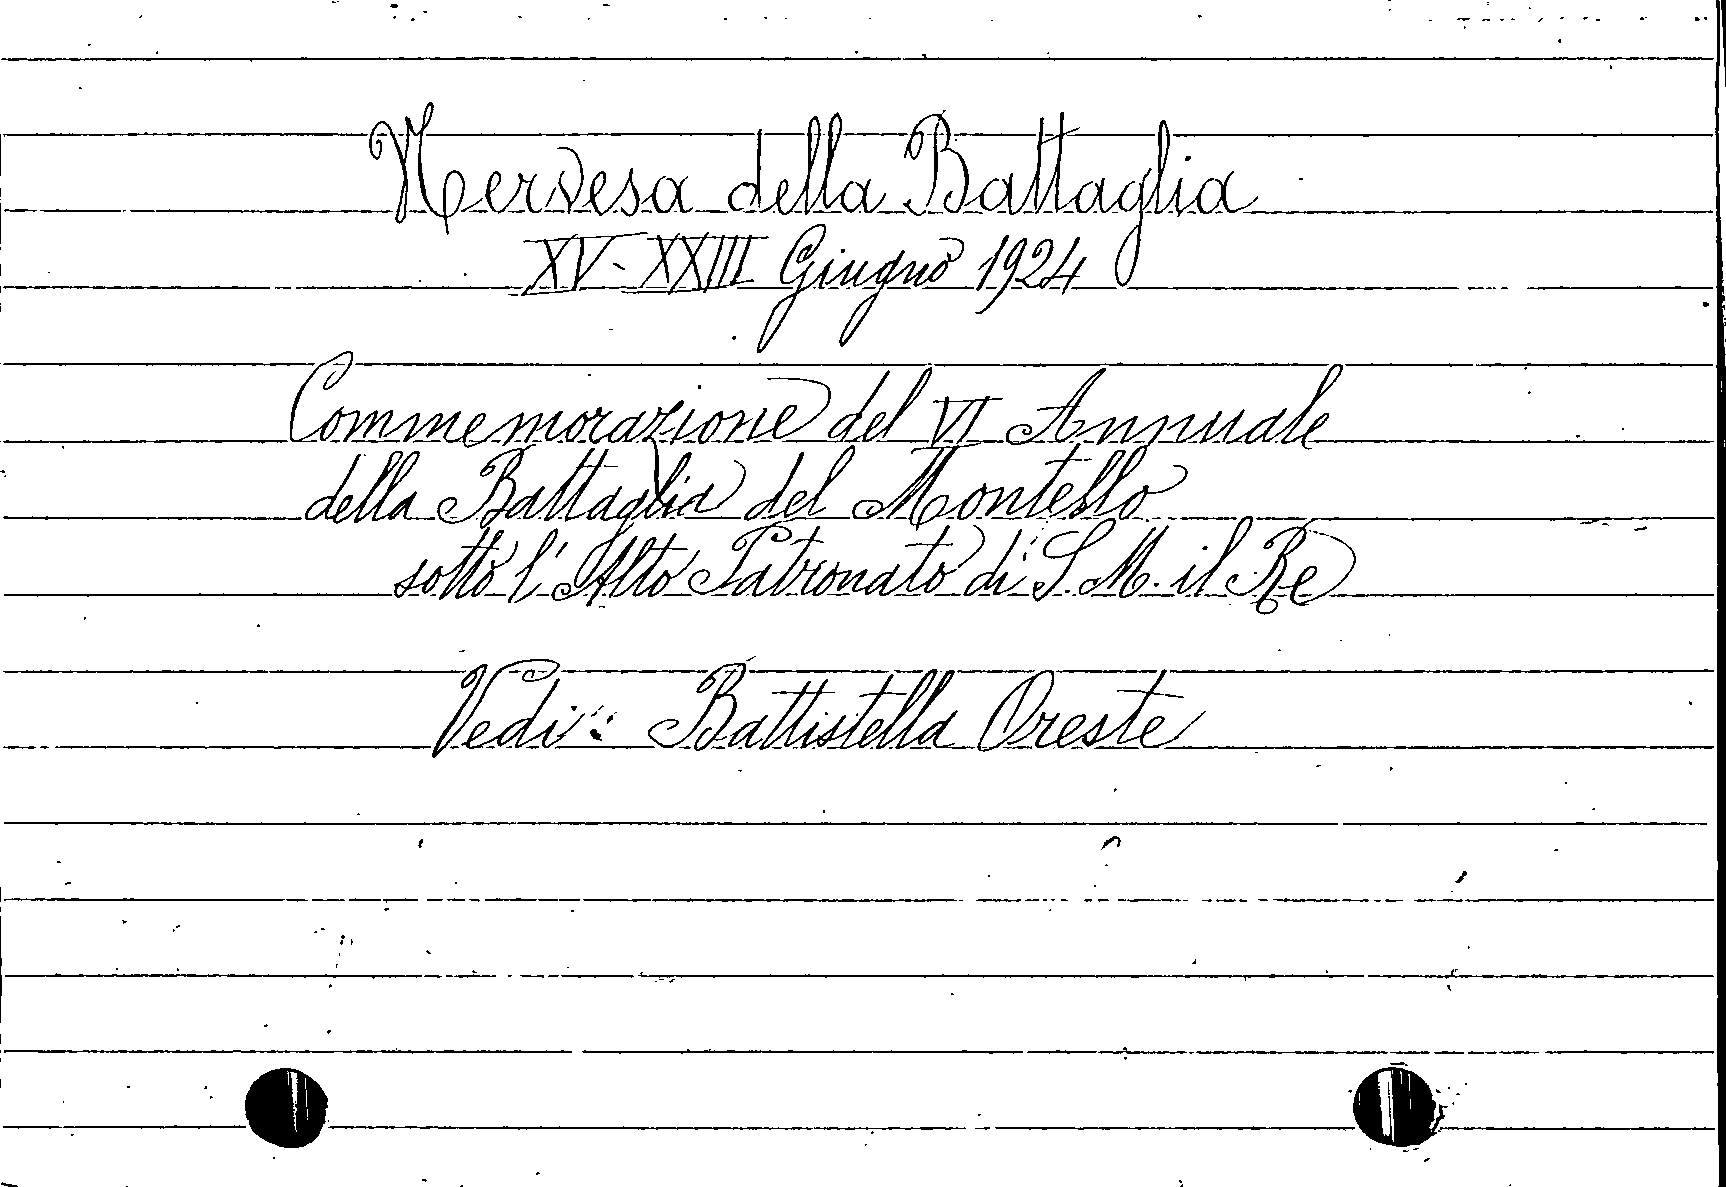 Nervesa della Battaglia
XV-XXIII Giugno 1924
Commemorazione del VI Annuale
della Battaglia del Montello
sotto l'Alto Patronato di S. M. il Re
Vedi: Battistella Oreste